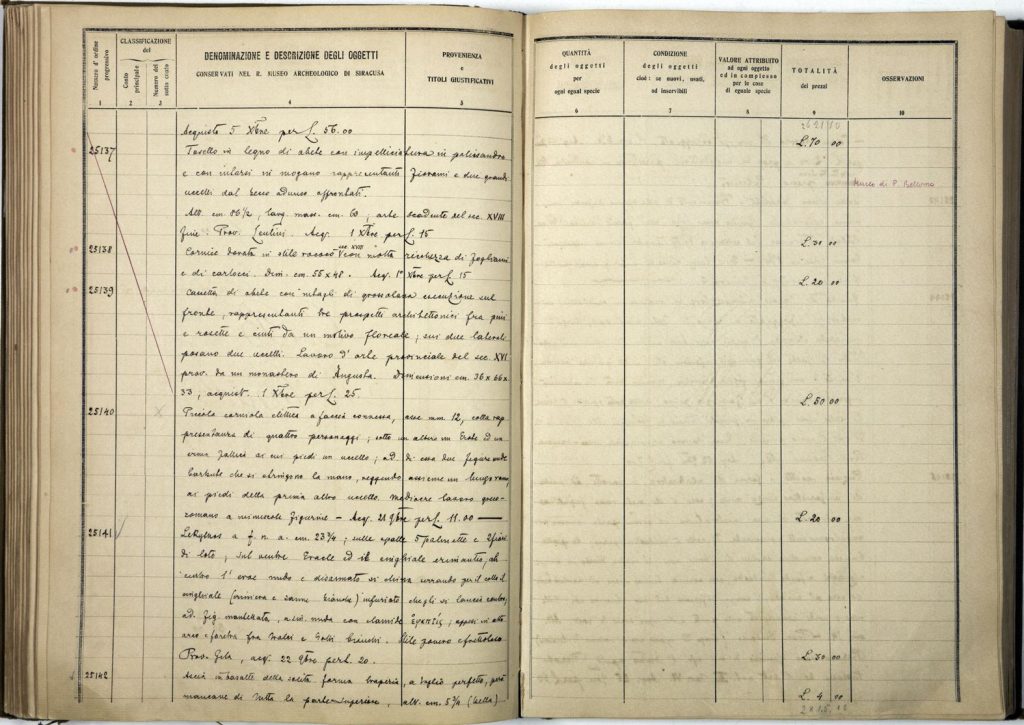 Numero d'ordine progressivo
CLASSIFICAZIONE
del
Costo principale
Numero del sotto costo
DENOMINAZIONE E DESCRIZIONE DEGLI OGGETTI
CONSERVATI NEL R. MUSEO ARCHEOLOGICO DI SIRACUSA
PROVENIENZA
e
TITOLI GIUSTIFICATIVI
1 2 3 4 5
Acquisto 5 Xbre per £. 56.00
25137 Tassello in legno di abete con impellicciatura in palissandro
e con intarsi in mogano rappresentanti e due grandi
uccelli dal becco adunco affrontati.
Alt. cm. 86 1/2, larg. mass. cm. 60; arte scadente del sec. XVIII
fine Prov. Lentini. Acq. 1 Xbre per £. 15
25138 Cornice dorata in stile rococò sec. XVIII con molta ricchezza di fogliami
e di cartocci. Dim. cm. 55 x 48. Acq. 1° Xbre per £. 15
25139 Cassetta di abete con intagli di grossolana esecuzione sul
fronte, rappresentanti tre prospetti architettonici fra pini
e rosette e cinti da un motivo floreale; sui due laterali
posano due uccelli. Lavoro d'arte provinciale del sec. XVI
prov. da un monastero di Augusta. Dimensioni cm. 36 x 66 x
33, acquist. 1 Xbre per £. 25
25140 Piccola corniola ellittica a faccia convessa, asse mm. 12, colla rap
presentanza di quattro personaggi; sotto un albero un ed un
erma ai cui piedi un uccello; ad. di essa due figure nude
barbute che si stringono la mano, reggendo assieme un lungo ramo,
ai piedi della prima altro uccello. Mediocre lavoro greco-
romano a minuscole figurine — Acq. 21 9bre per £. 11.00 —
25141 Lekythos a f. n. a. cm. 23 1/4; sulle spalle 5 palmette e 2 fiori
di loto; sul ventre Eracle ed il cinghiale erimanteo, al
centro l'eroe nudo e disarmato si china serrando per il collo il
cinghiale (criniera e zanne bianche) infuriato che gli si lancia contro;
ad. fig. mantellata, a sin. nuda con clamide appesi in alto
arco e faretra fra tralci e frutti bianchi. Stile povero e frettoloso
Prov. Gela, acq. 22 9bre per £. 20.
25142 Ascia in basalte della solita forma trapezia, a taglio perfetto, però
mancante di tutta la parte superiore, alt. cm. 5 3/4 (Licella)
QUANTITÀ
degli oggetti
per
ogni egual specie
CONDIZIONE
degli oggetti
cioè: se nuovi, usati,
od inservibili
VALORE ATTRIBUITO
ad ogni oggetto
ed in complesso
per le cose
di eguale specie
TOTALITÀ
dei prezzi
OSSERVAZIONI
6 7 8 9 10
£. 70 00
Museo di P. Bellomo
£. 30 00
£. 20 00
£. 50 00
£. 20 00
£. 30 00
£. 4 00